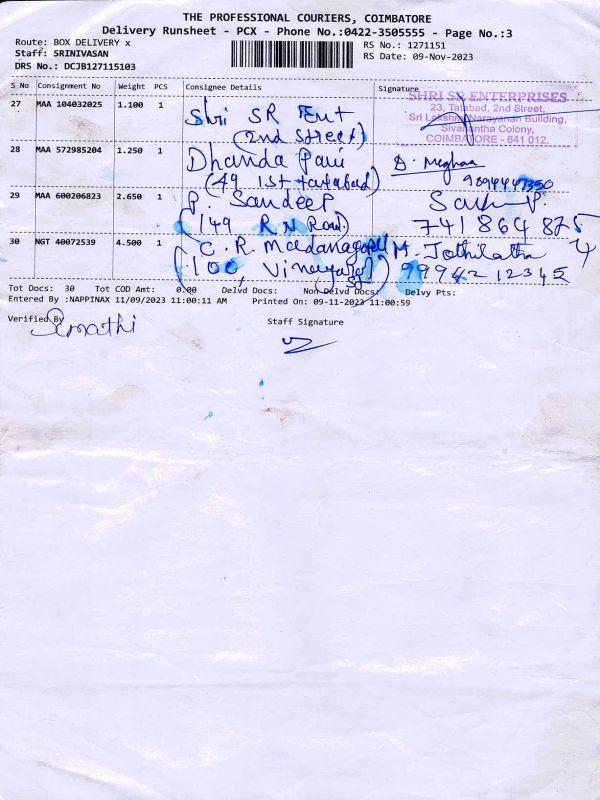 THE PROFESSIONAL COURIERS, COIMBATORE
Delivery Runsheet - PCX - Phone No.:0422-3505555 - Page No.:3
Route: BOX DELIVERY x
RS No.: 1271151
Staff: SRINIVASAN
RS Date: 09-Nov-2023
DRS No.: DCJB127115103
S No Consignment No Weight PCS Consignee Details Signature
SHRI SR ENTERPRISES
23, Tatabad, 2nd Street,
Sri Lakshmi Narayanan Building,
Sivanantha Colony,
COIMBATORE - 641 012.
27 MAA 104032025 1.100 1 Shri SR Ent
(2nd Street)
28 MAA 572985204 1.250 1 Dhanda Pani D. Meghaa
(49 1st tatabad) 9894447350
29 MAA 600206823 2.650 1 P. Sandeep
(149 R N Road)
30 NGT 40072539 4.500 1 C. R. Madanagopal M. Jothilatha
(100, Vinayagar st) 9994212345
Tot Docs: 30 Tot COD Amt: 0.00 Delvd Docs: Non Delvd Docs: Delvy Pts:
Entered By :NAPPINAX 11/09/2023 11:00:11 AM Printed On: 09-11-2023 11:00:59
Verified By
Staff Signature